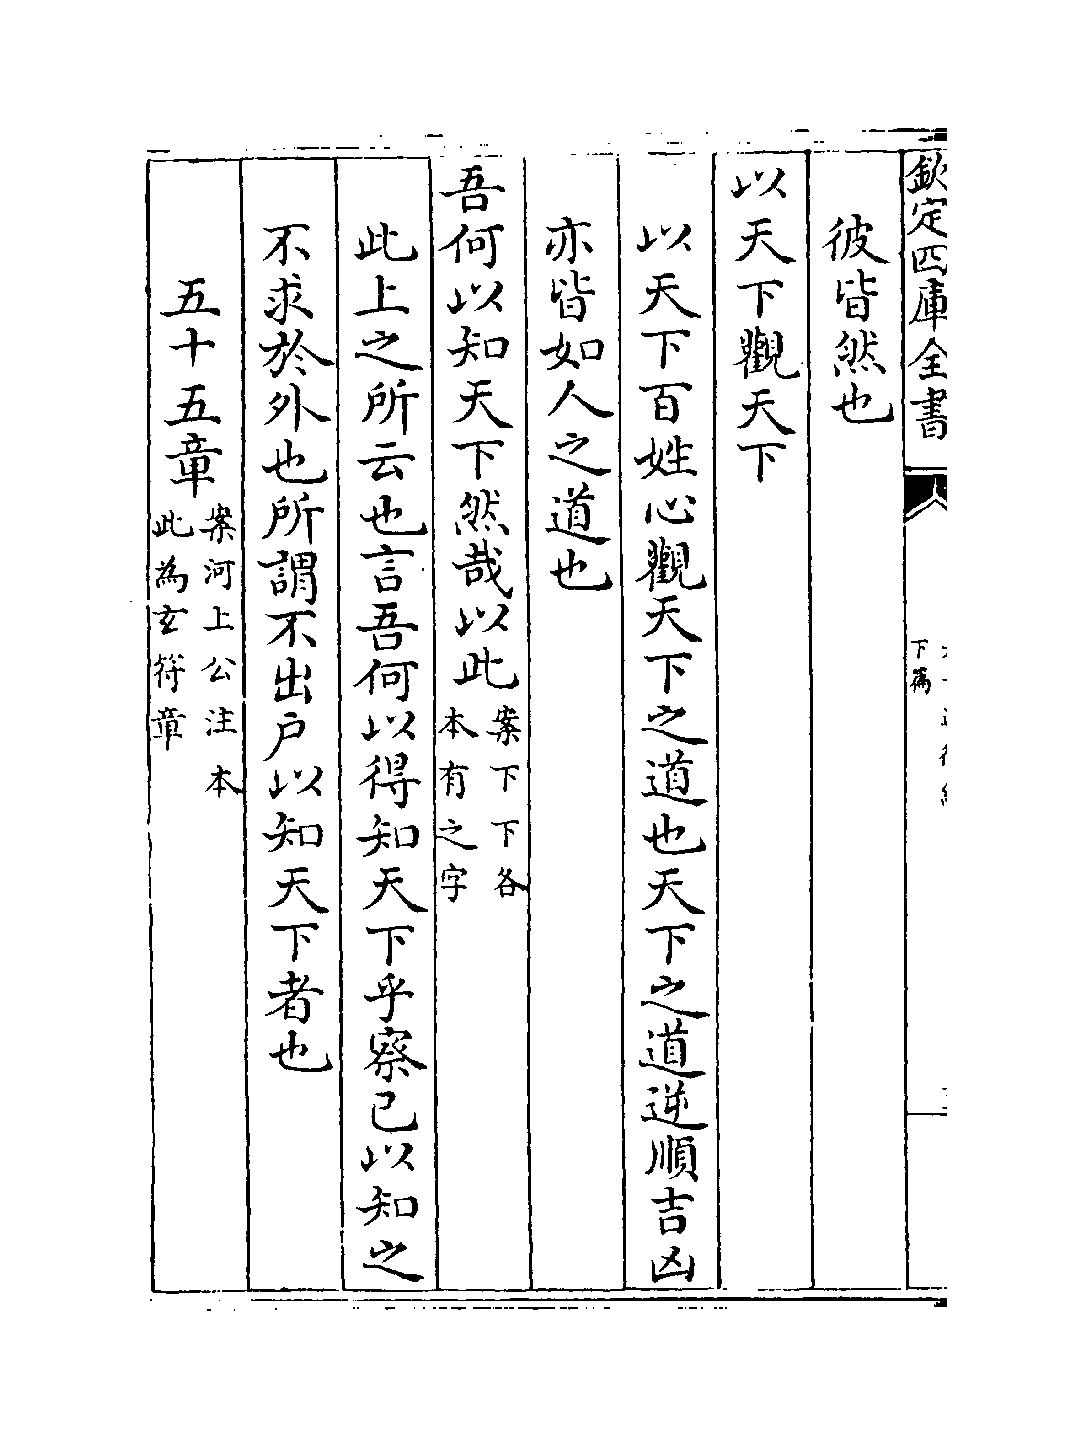 欽定四庫全書
下篇
彼皆然也
以天下觀天下
以天下百姓心觀天下之道也天下之道逆順吉凶
亦皆如人之道也
吾何以知天下然哉以此案下下各本有之字
此上之所云也言吾何以得知天下乎察己以知之
不求於外也所謂不出户以知天下者也
五十五章案河上公注本此為玄符章